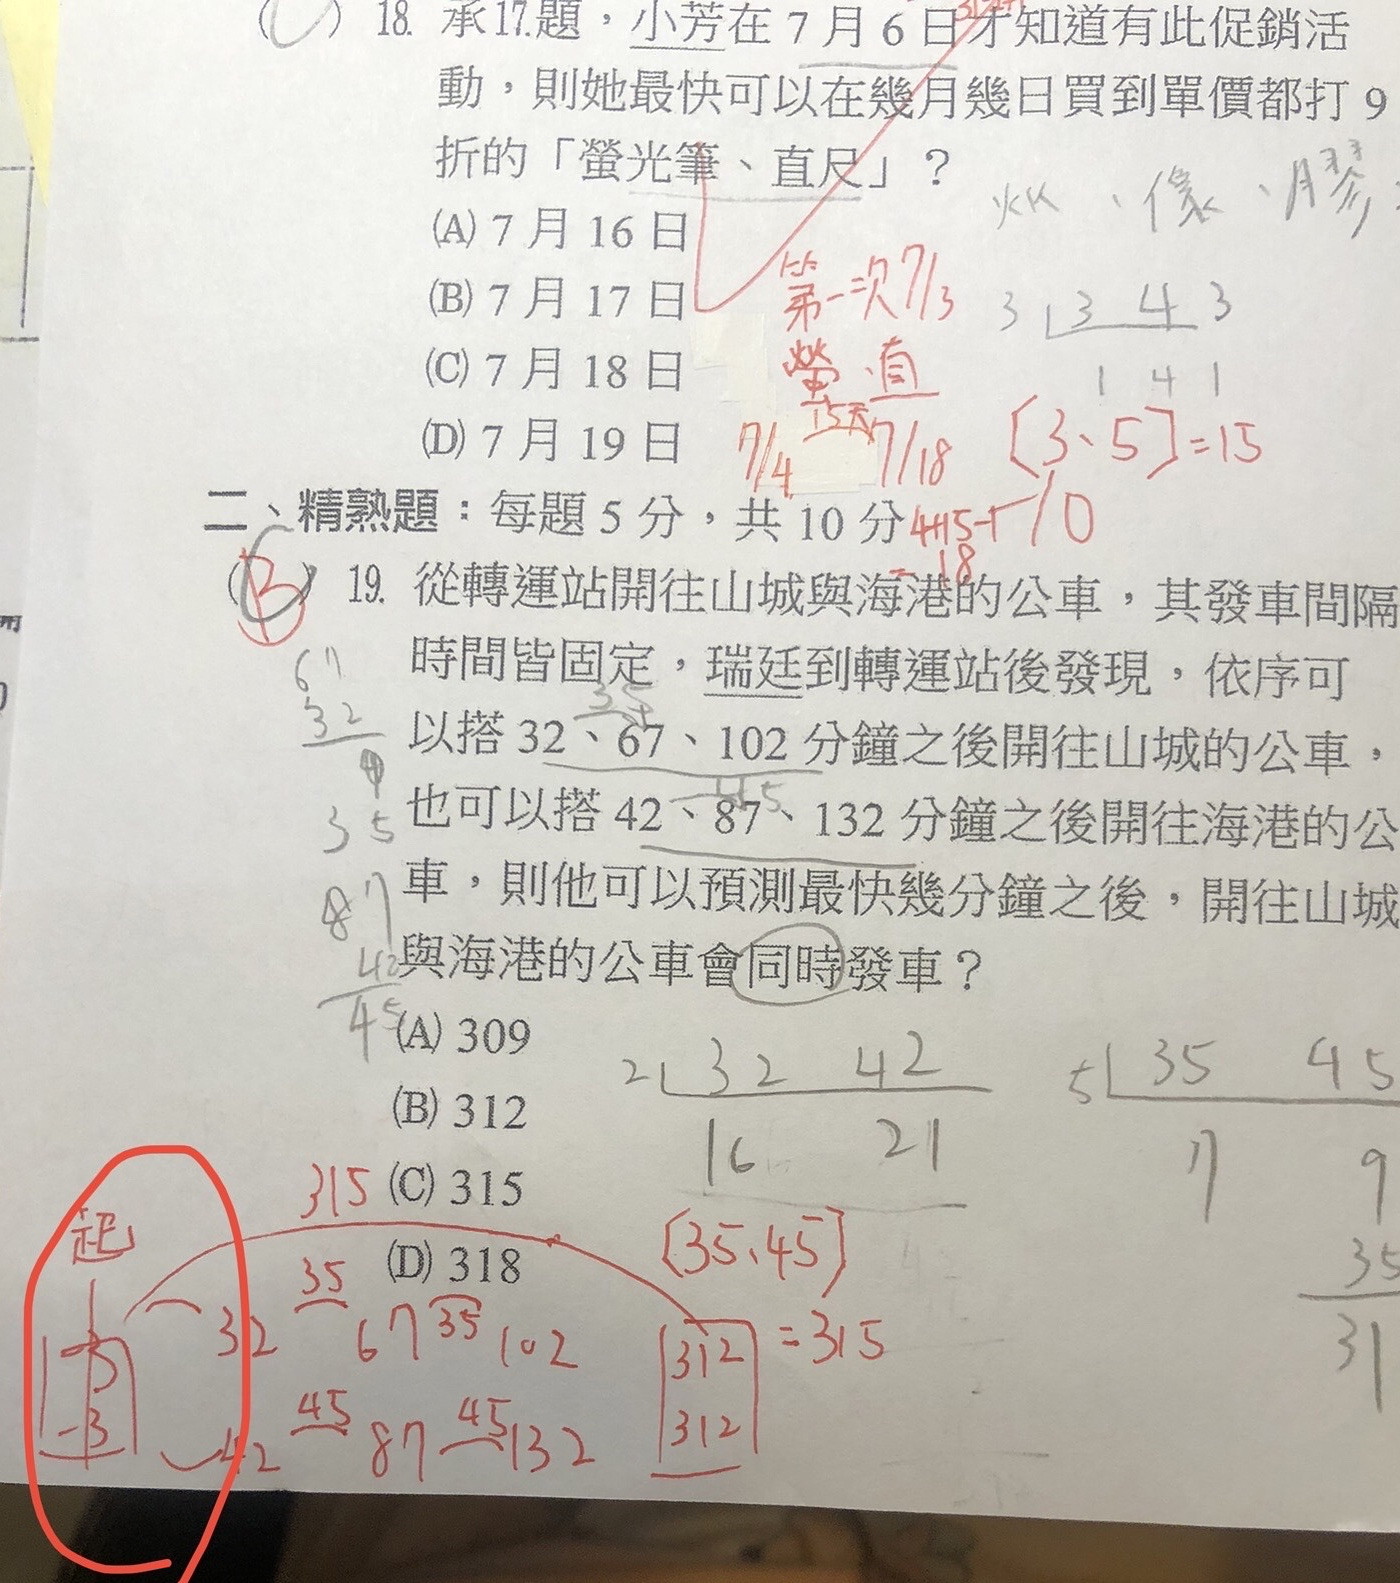 ( ) 18. 承17.題，小芳在 7 月 6 日才知道有此促銷活
動，則她最快可以在幾月幾日買到單價都打 9
折的「螢光筆、直尺」？
(A) 7 月 16 日
(B) 7 月 17 日
(C) 7 月 18 日
(D) 7 月 19 日
第一次 7/3
螢、直
15天
7/4 7/18
[3、5]=15
4+15-1
=18
3 3 4 3
1 4 1
二、精熟題：每題 5 分，共 10 分
/10
(B) 19. 從轉運站開往山城與海港的公車，其發車間隔
時間皆固定，瑞廷到轉運站後發現，依序可
以搭 32、67、102 分鐘之後開往山城的公車，
也可以搭 42、87、132 分鐘之後開往海港的公
車，則他可以預測最快幾分鐘之後，開往山城
與海港的公車會同時發車？
(A) 309
(B) 312
(C) 315
(D) 318
67
32
35
87
42
45
2 32 42
16 21
5 35 45
7 9
35
31
315
[35、45]
=315
起
-3
-3
32 35 67 35 102 312
42 45 87 45 132 312